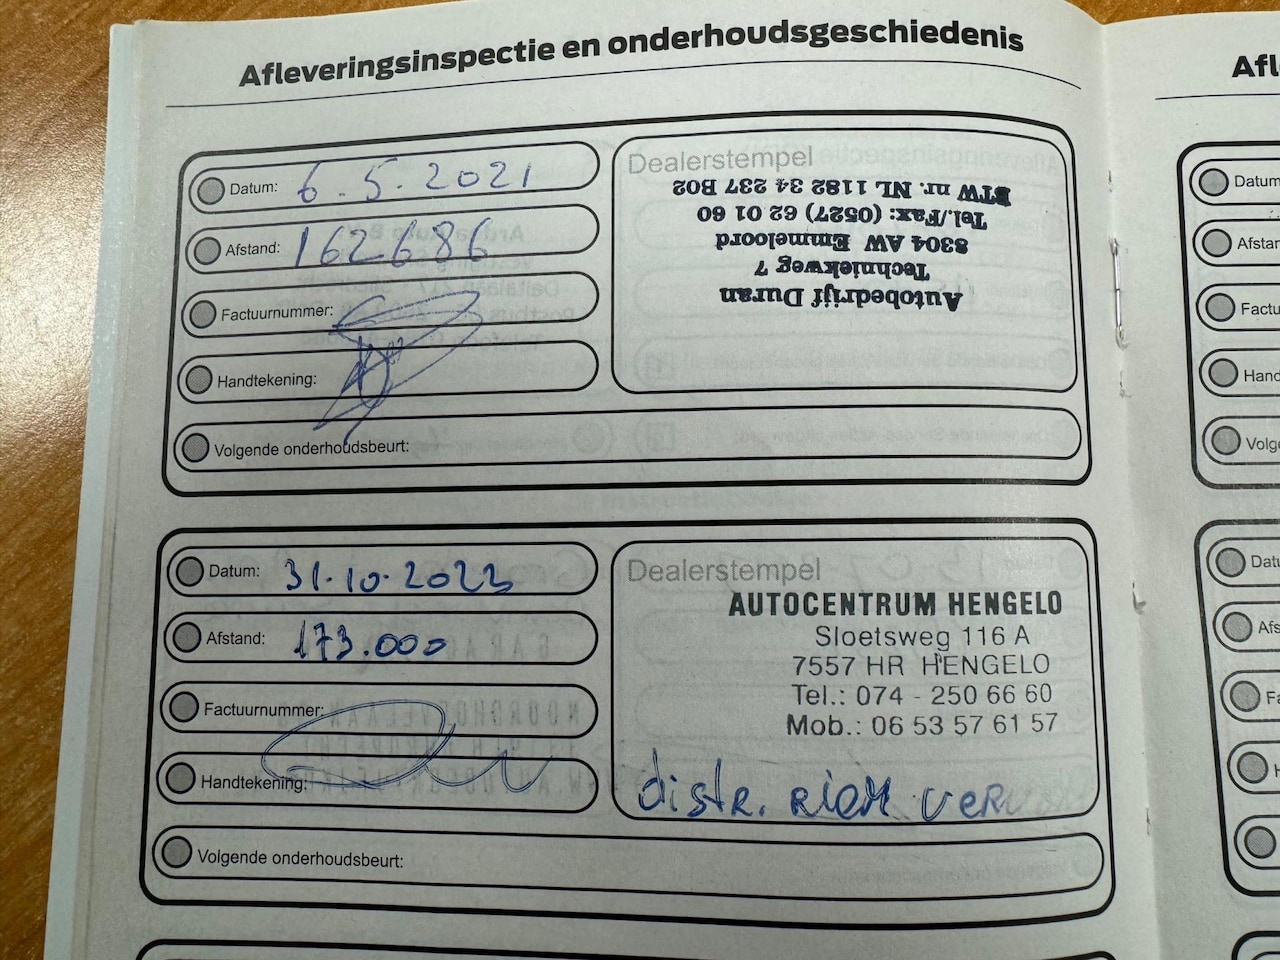 Afleveringsinspectie en onderhoudsgeschiedenis
Datum: 6.5.2021
Afstand: 162686
Factuurnummer:
Handtekening:
Volgende onderhoudsbeurt:
Dealerstempel
Autobedrijf Duran
Techniekweg 7
8304 AW Emmeloord
Tel./Fax: (0527) 62 01 60
BTW nr. NL 1182 34 237 B02
Datum: 31.10.2023
Afstand: 173.000
Factuurnummer:
Handtekening:
Volgende onderhoudsbeurt:
Dealerstempel
AUTOCENTRUM HENGELO
Sloetsweg 116 A
7557 HR HENGELO
Tel.: 074 - 250 66 60
Mob.: 06 53 57 61 57
distr. riem
Afl
Datum
Afstan
Factu
Hand
Volge
Datu
Afs
Fa
H